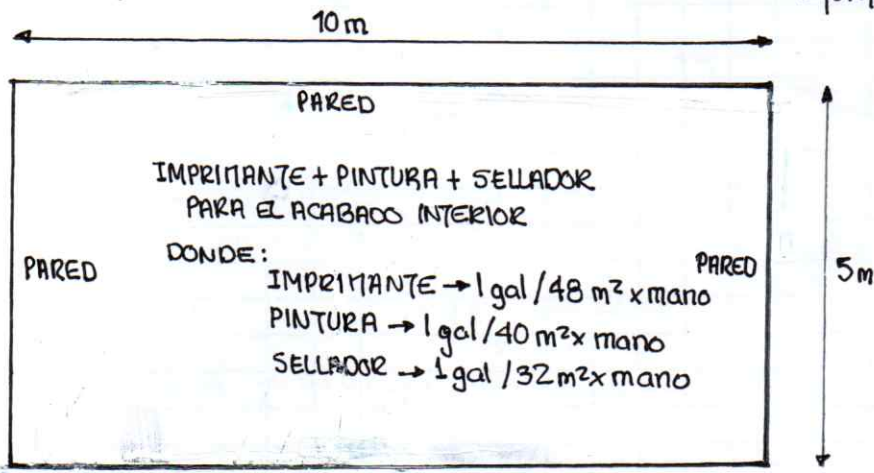 10 m
PARED
IMPRIMANTE + PINTURA + SELLADOR
PARA EL ACABADO INTERIOR
DONDE:
PARED
PARED
IMPRIMANTE → 1 gal / 48 m² x mano
PINTURA → 1 gal / 40 m² x mano
SELLADOR → 1 gal / 32 m² x mano
5 m